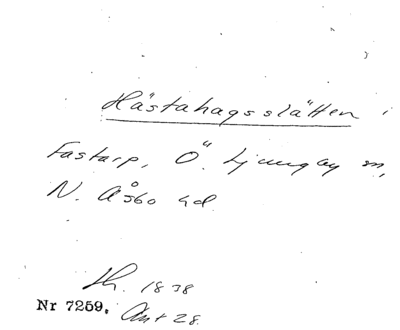 Hästahagsslätten
Fastarp, Ö. Ljungby sn,
N. Åsbo hd.
Lh. 1838
Nr 7259. Ant 28.